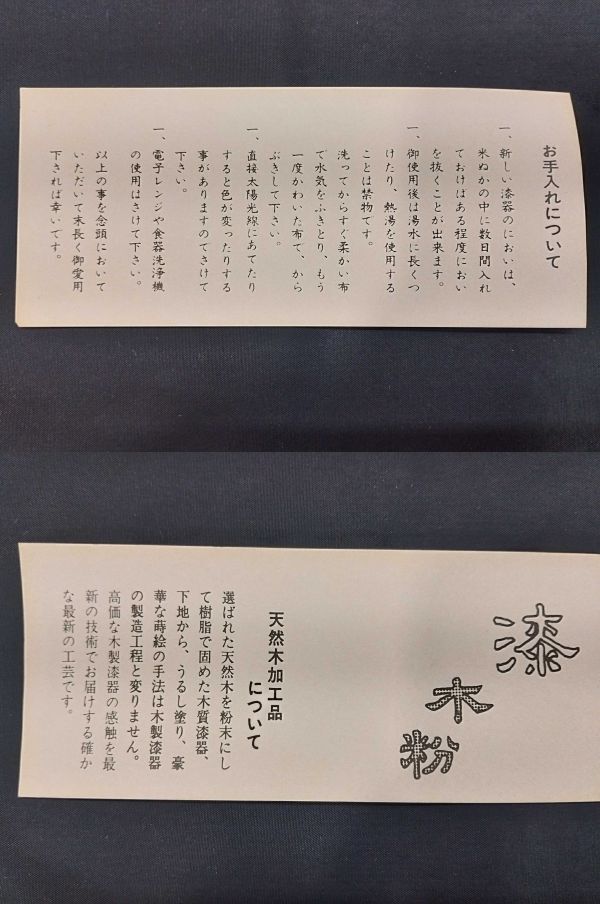 お手入れについて
一、新しい漆器のにおいは、
米ぬかの中に数日間入れ
ておけばある程度におい
を抜くことが出来ます。
一、御使用後は湯水に長くつ
けたり、熱湯を使用する
ことは禁物です。
洗ってからすぐ柔かい布
で水気をふきとり、もう
一度かわいた布で、から
ぶきして下さい。
一、直接太陽光線にあてたり
すると色が変ったりする
事がありますのでさけて
下さい。
一、電子レンジや食器洗浄機
の使用はさけて下さい。
以上の事を念頭において
いただいて末長く御愛用
下されば幸いです。
漆
木
粉
天然木加工品
について
選ばれた天然木を粉末にし
て樹脂で固めた木質漆器、
下地から、うるし塗り、豪
華な蒔絵の手法は木製漆器
の製造工程と変りません。
高価な木製漆器の感触を最
新の技術でお届けする確か
な最新の工芸です。